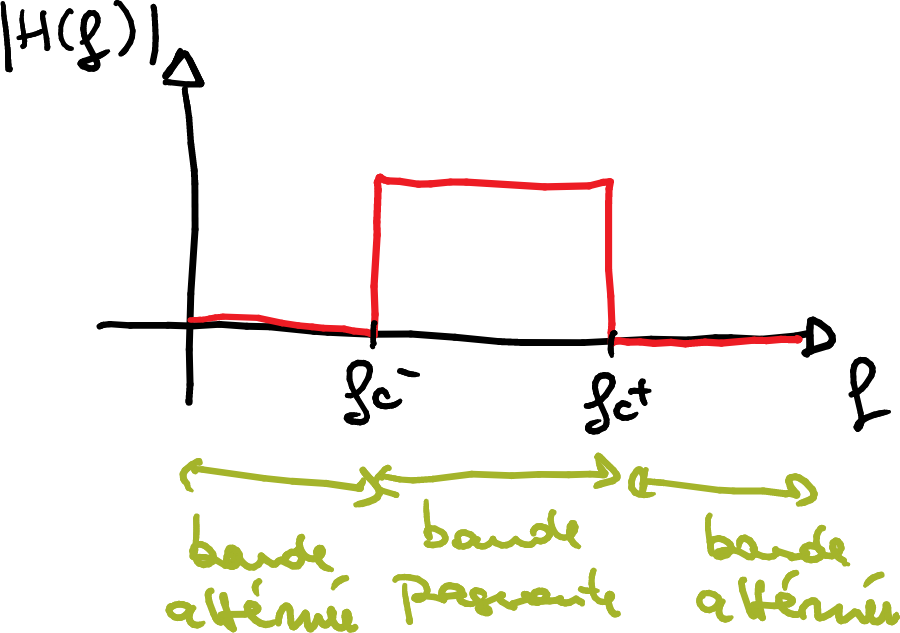 |H(f)|
fc⁻
fc⁺
f
bande
atténuée
bande
passante
bande
atténuée